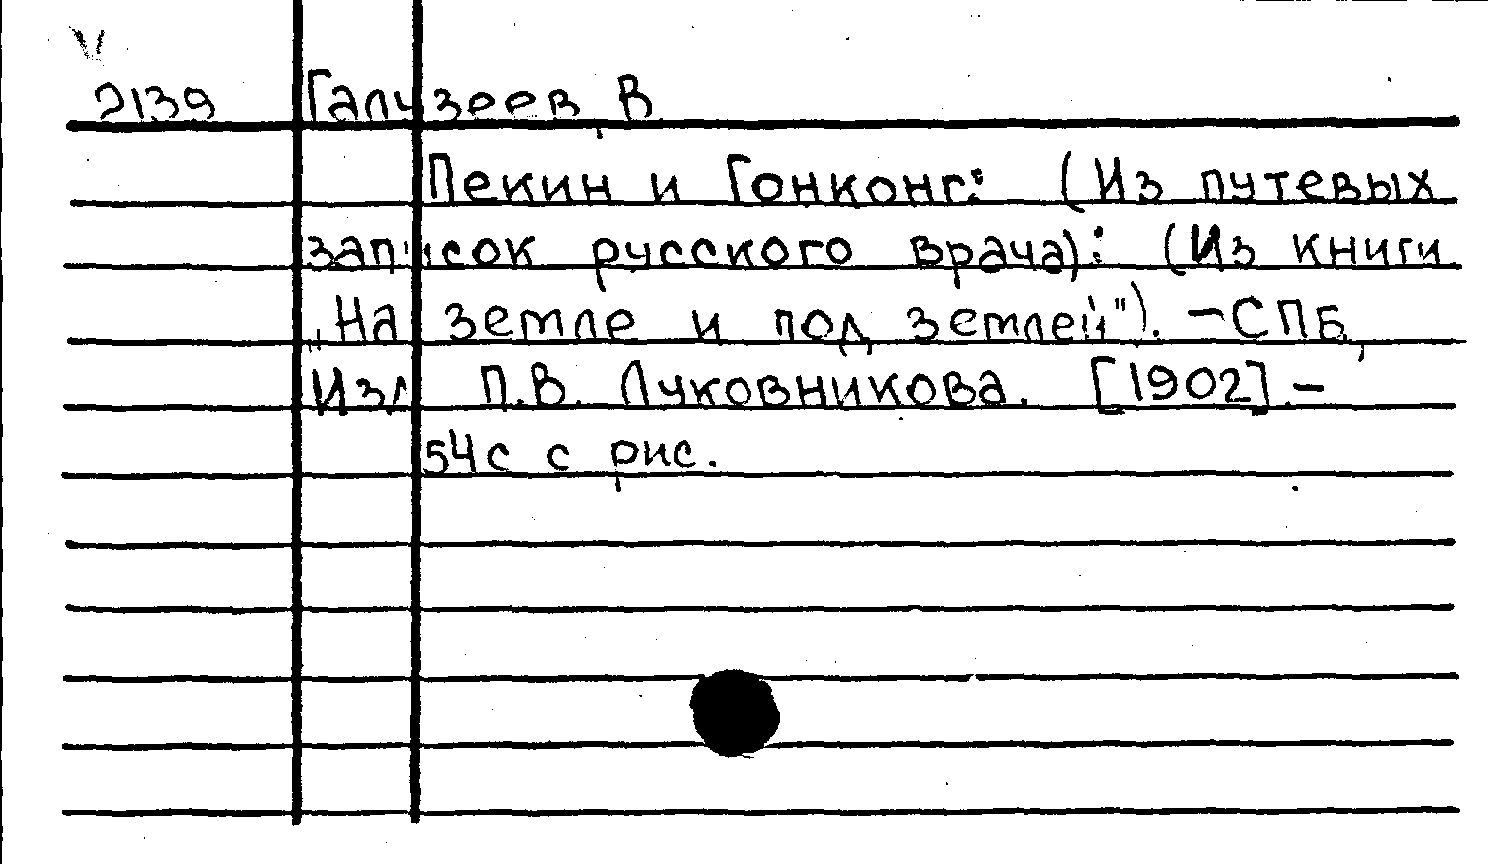 V
2139 Галузеев, В
Пекин и Гонконг: (Из путевых
записок русского врача): (Из книги
„На земле и под землей"). — СПБ,
Изд П.В. Луковникова. [1902]. —
54с с рис.